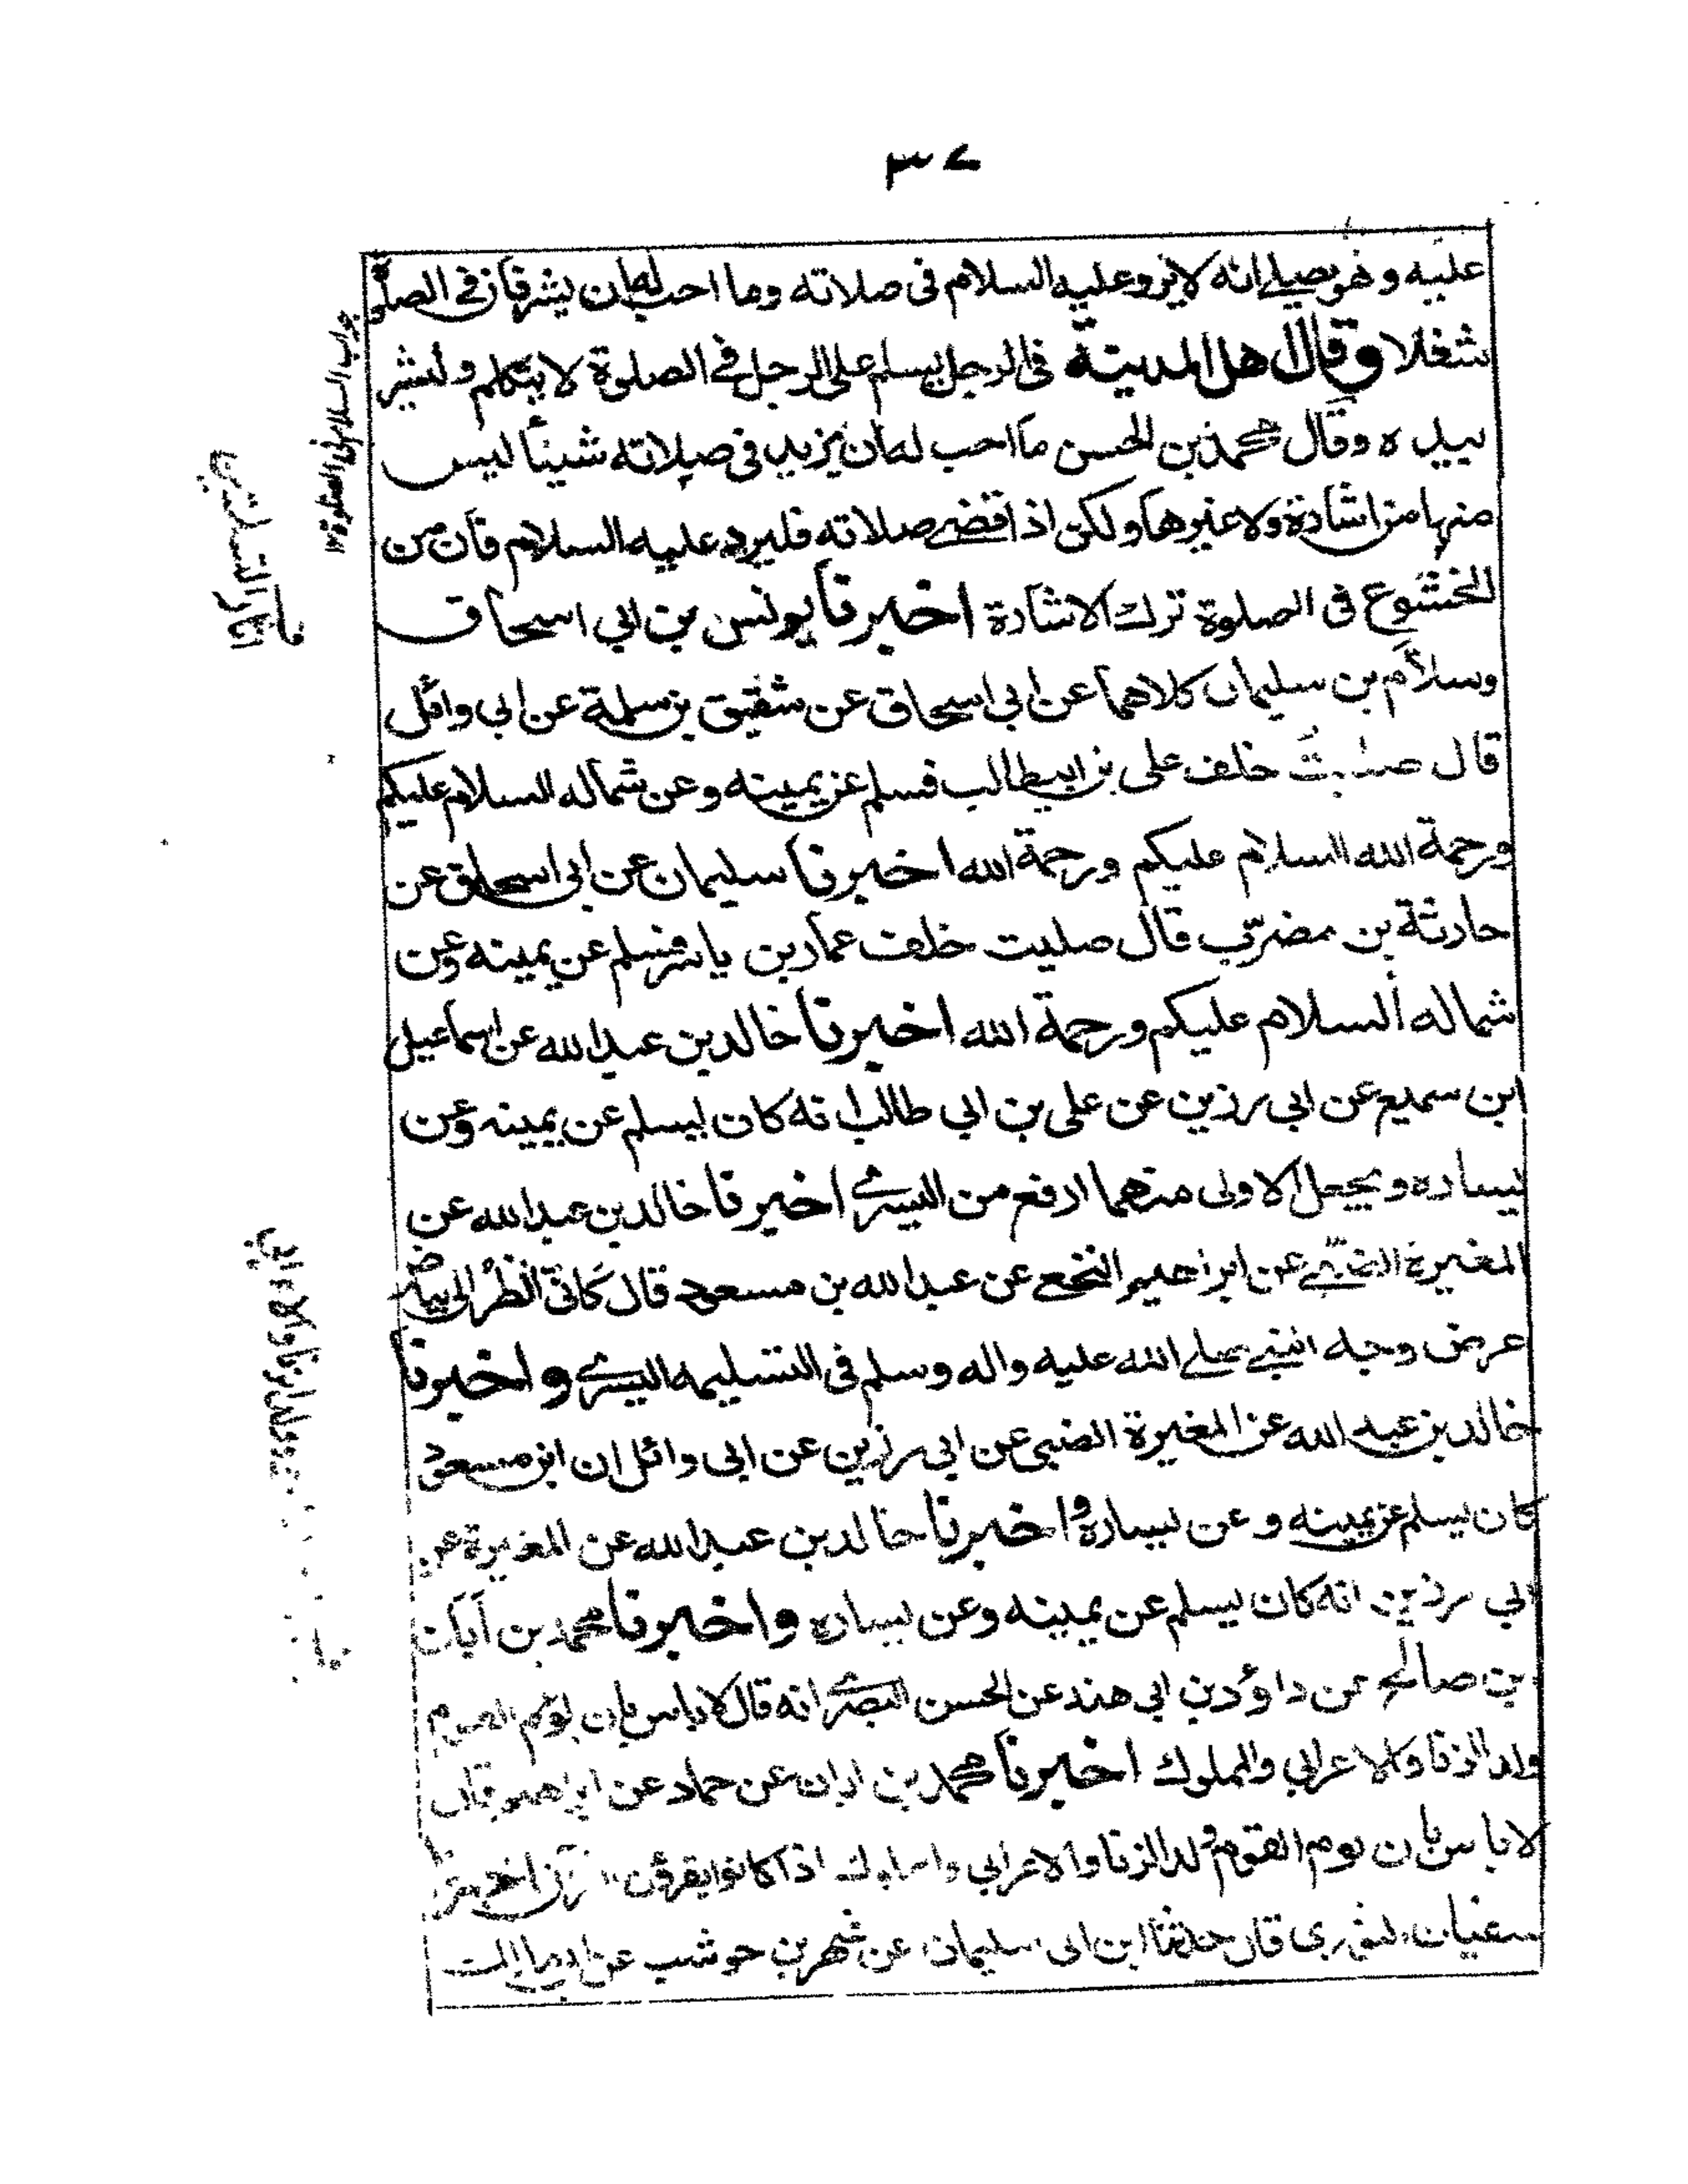 ٣٧
عليه وهو يصلي انه لا يرد عليه السلام فى صلاته وما احب له ان يشر فان فى الصلوة
شغلا وقال اهل المدينة فى الرجل يسلم على الرجل فى الصلوة لا يتكلم وليشر
بيده ه وقال محمد بن الحسن ما احب له ان يزيد فى صلاته شيئا ليس
منها من اشارة ولا غيرها ولكن اذا قضى صلاته فليرد عليه السلام فان من
الخشوع فى الصلوة ترك الاشارة اخبرنا يونس بن ابي اسحاق
وسلام بن سليمان كلاهما عن ابي اسحاق عن شقيق بن سلمة عن ابي وائل
قال صليت خلف على بن ابيطالب فسلم عن يمينه وعن شماله السلام عليكم
ورحمة الله السلام عليكم ورحمة الله اخبرنا سليمان عن ابي اسحاق عن
حارثة بن مضرب قال صليت خلف عمار بن ياسر فسلم عن يمينه وعن
شماله السلام عليكم ورحمة الله اخبرنا خالد بن عبد الله عن اسماعيل
ابن سميع عن ابي رزين عن على بن ابي طالب انه كان يسلم عن يمينه وعن
يساره ويجعل الاولى منهما ارفع من اليسرى اخبرنا خالد بن عبد الله عن
المغيرة الضبي عن ابراهيم النخعي عن عبد الله بن مسعود قال كاني انظر الى بياض
عرض وجه النبي صلى الله عليه واله وسلم فى التسليمه اليسرى واخبرنا
خالد بن عبد الله عن المغيرة الضبي عن ابي رزين عن ابي وائل ان ابن مسعود
كان يسلم عن يمينه وعن يساره واخبرنا خالد بن عبد الله عن المغيرة عن
ابي رزين انه كان يسلم عن يمينه وعن يساره واخبرنا محمد بن ابان
بن صالح عن داؤد بن ابي هند عن الحسن البصرى انه قال لا باس بان يؤم القوم
ولد الزنا والاعرابي والمملوك اخبرنا محمد بن ابان عن حماد عن ابراهيم قال
لا باس بان يوم القوم ولد الزنا والاعرابي والمملوك اذا كانوا يقرؤن القرآن اخبرنا
سفيان الثوري قال حدثنا ابن ابي سليمان عن شهر بن حوشب عن
جواب السلام فى الصلوة